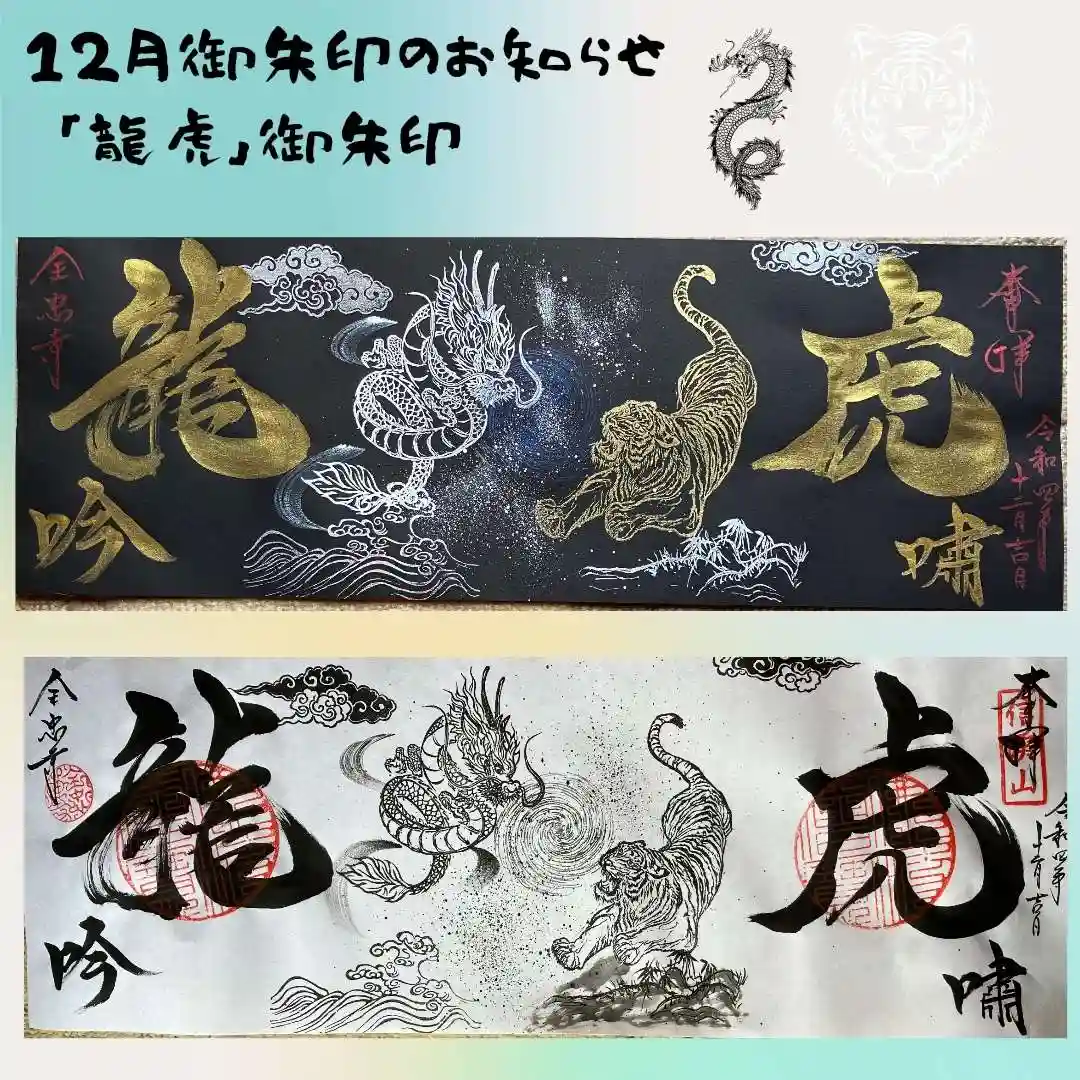 12月御朱印のお知らせ
「龍虎」御朱印
奉拝
令和四年
十二月吉日
虎
嘯
龍
吟
全忠寺
奉拝
令和四年
十二月吉日
虎
嘯
龍
吟
全忠寺